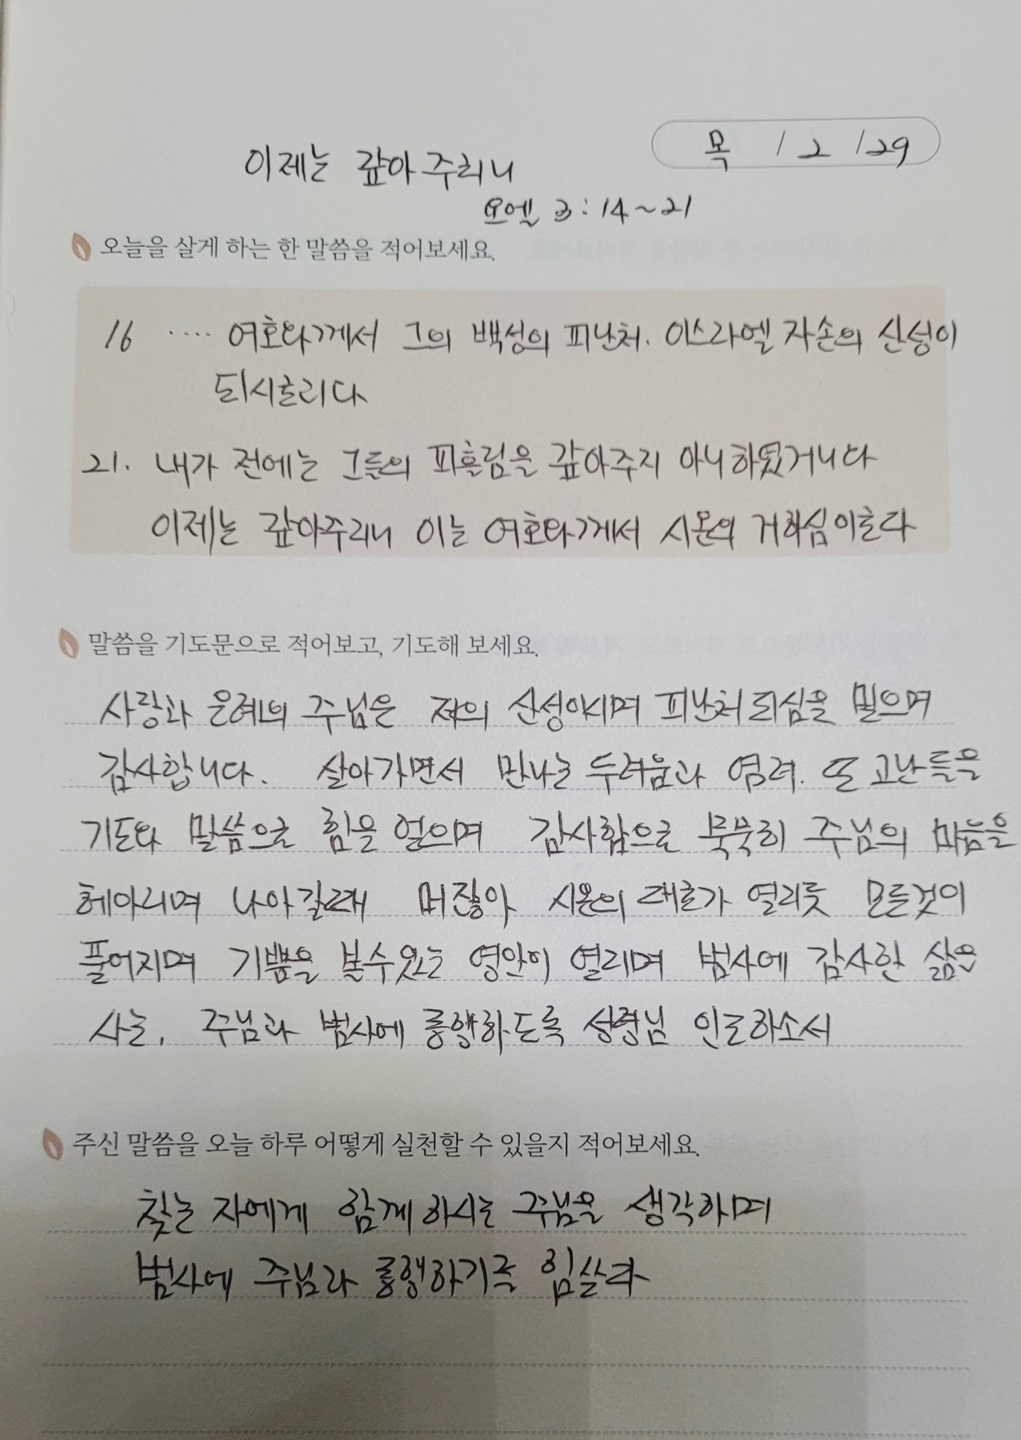 이제는 갚아 주리니
목 / 2 / 29
요엘 3:14~21
오늘을 살게 하는 한 말씀을 적어보세요.
16 ···· 여호와께서 그의 백성의 피난처. 이스라엘 자손의 산성이
되시흐리다
21. 내가 전에는 그들의 피흘림을 갚아주지 아니하였거니와
이제는 갚아주리니 이는 여호와께서 시온의 거하심이흐다
말씀을 기도문으로 적어보고, 기도해 보세요.
사랑과 은혜의 주님은 저의 산성이시며 피난처되심을 믿으며
감사합니다. 살아가면서 만나는 두려움과 염려. 또 고난들을
기도와 말씀으로 힘을 얻으며 감사함으로 묵묵히 주님의 마음을
헤아리며 나아갈때 머잖아 시온의 대로가 열리듯 모든것이
풀어지며 기쁨을 볼수있는 영안이 열리며 범사에 감사한 삶을
사는, 주님과 범사에 동행하도록 성령님 인도하소서
주신 말씀을 오늘 하루 어떻게 실천할 수 있을지 적어보세요.
찾는 자에게 함께하시는 주님을 생각하며
범사에 주님과 동행하기를 힘쓰라